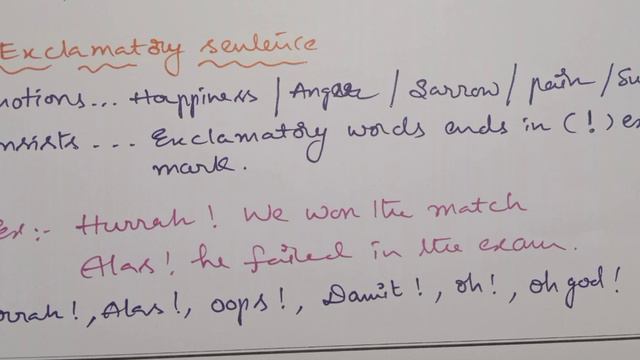 Exclamatory sentence
motions... Happiness / Anger / Sarrow / pain / Su
nsists ... Exclamatory words ends in (!) ex
mark.
Ex:- Hurrah! We won the match
Alas! he failed in the exam.
rrah!, Alas!, oops!, Damit!, oh!, oh god!